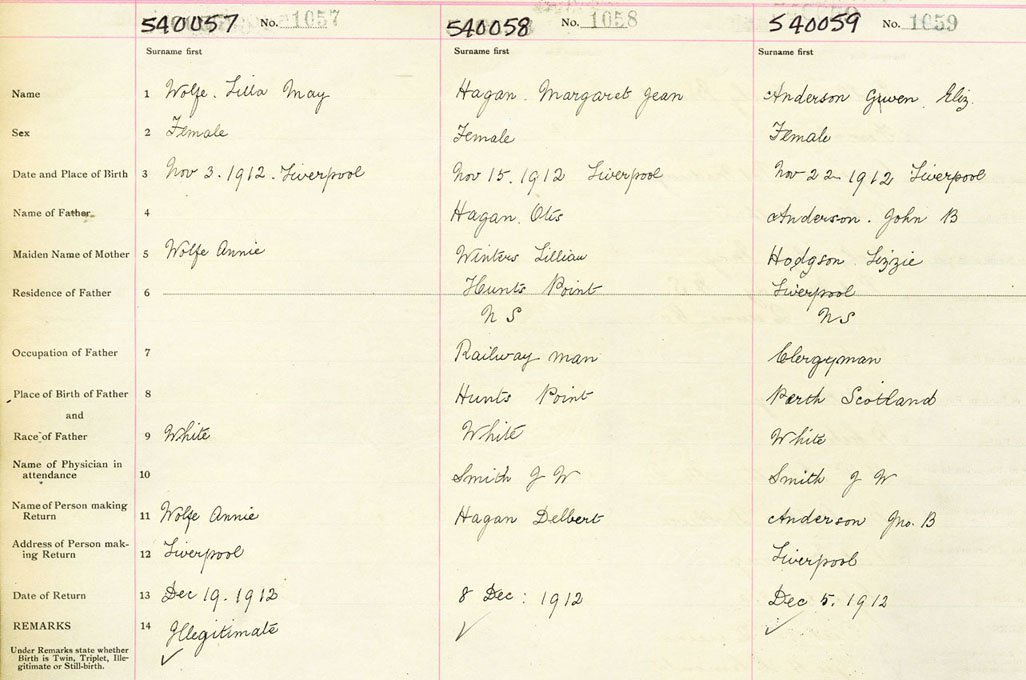 540057 No. 1057 540058 No. 1058 540059 No. 1059
Surname first Surname first Surname first
Name 1 Wolfe. Lilla May Hagan. Margaret Jean Anderson Gwen. Eliz.
Sex 2 Female Female Female
Date and Place of Birth 3 Nov 3. 1912. Liverpool Nov 15. 1912 Liverpool Nov 22 1912 Liverpool
Name of Father 4 Hagan. Otis Anderson. John B
Maiden Name of Mother 5 Wolfe Annie Winters Lillian Hodgson Lizzie
Residence of Father 6 Hunts Point Liverpool
N S NS
Occupation of Father 7 Railway man Clergyman
Place of Birth of Father 8 Hunts Point Perth Scotland
and
Race of Father 9 White White White
Name of Physician in
attendance 10 Smith J W Smith J W
Name of Person making
Return 11 Wolfe Annie Hagan Delbert Anderson Jno. B
Address of Person mak-
ing Return 12 Liverpool Liverpool
Date of Return 13 Dec 19. 1912 8 Dec: 1912 Dec 5. 1912
REMARKS 14 Illegitimate
Under Remarks state whether
Birth is Twin, Triplet, Ille-
gitimate or Still-birth.